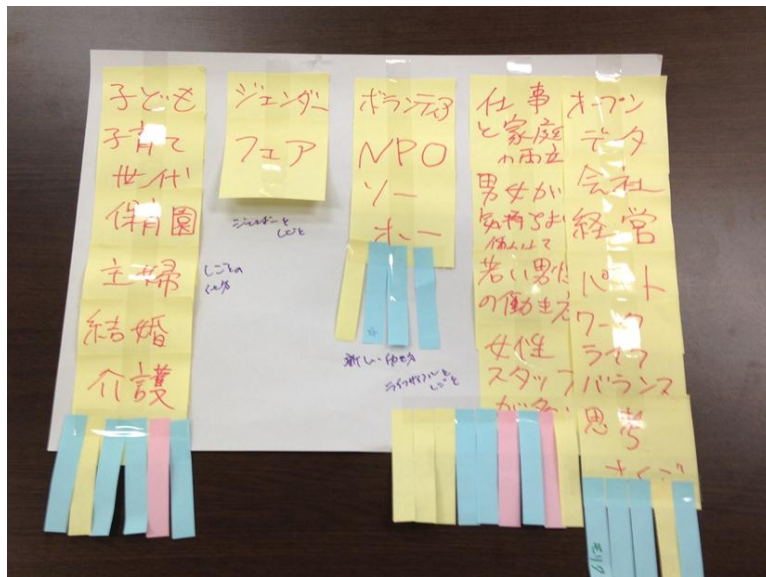 子ども
子育て
世代
保育園
主婦
結婚
介護
ジェンダー
フェア
ジェンダーと
しごと
しごとの
ボランティア
NPO
ソー
ホー
新しい
ライフサイクルと
しごと
仕事
と家庭
の両立
男女が
気持ちよく
若い男性
の働き方
女性
スタッフ
が多い
オープン
データ
会社
経営
パート
ワーク
ライフ
バランス
思考